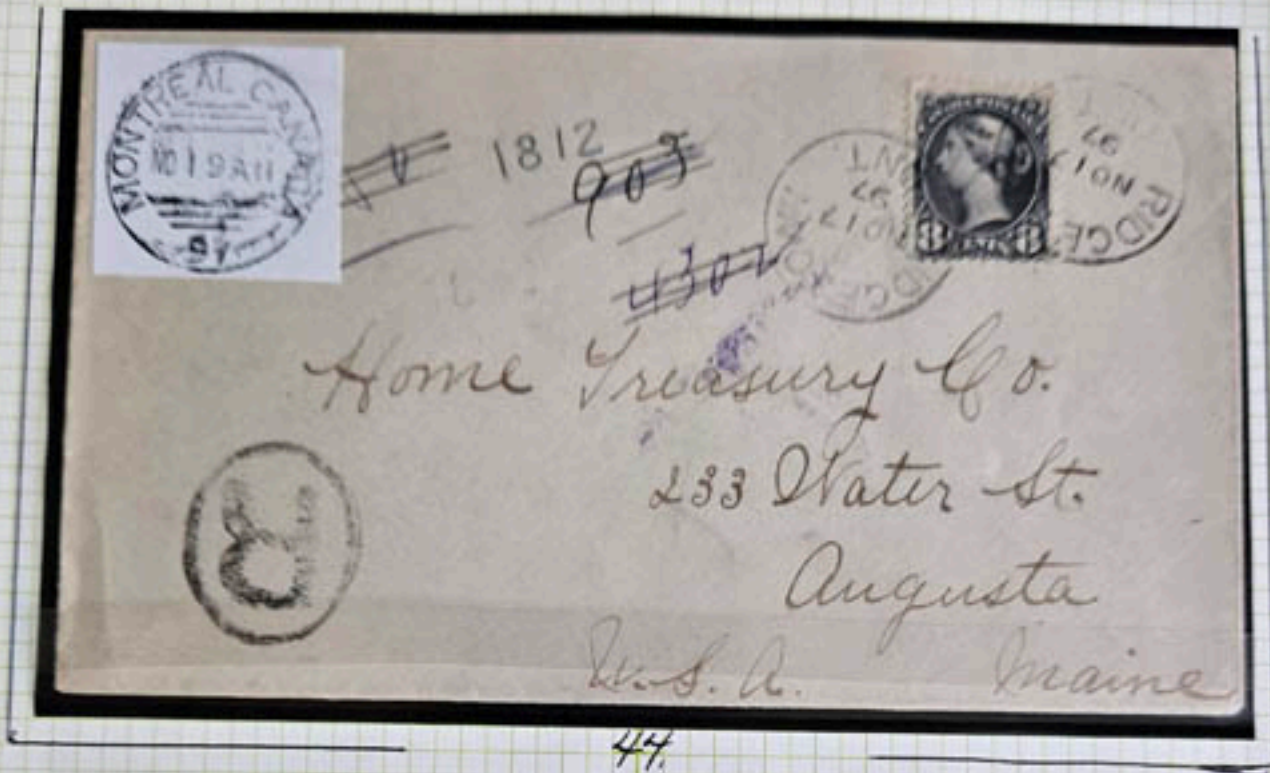 MONTREAL CANADA
NO 19 A11
97
1812
903
4302
NO 17
97
ONT
NO 17
97
RIDGE
8 CENTS 8
Home Treasury Co.
233 Water St.
Augusta
U.S.A. Maine
R
44.